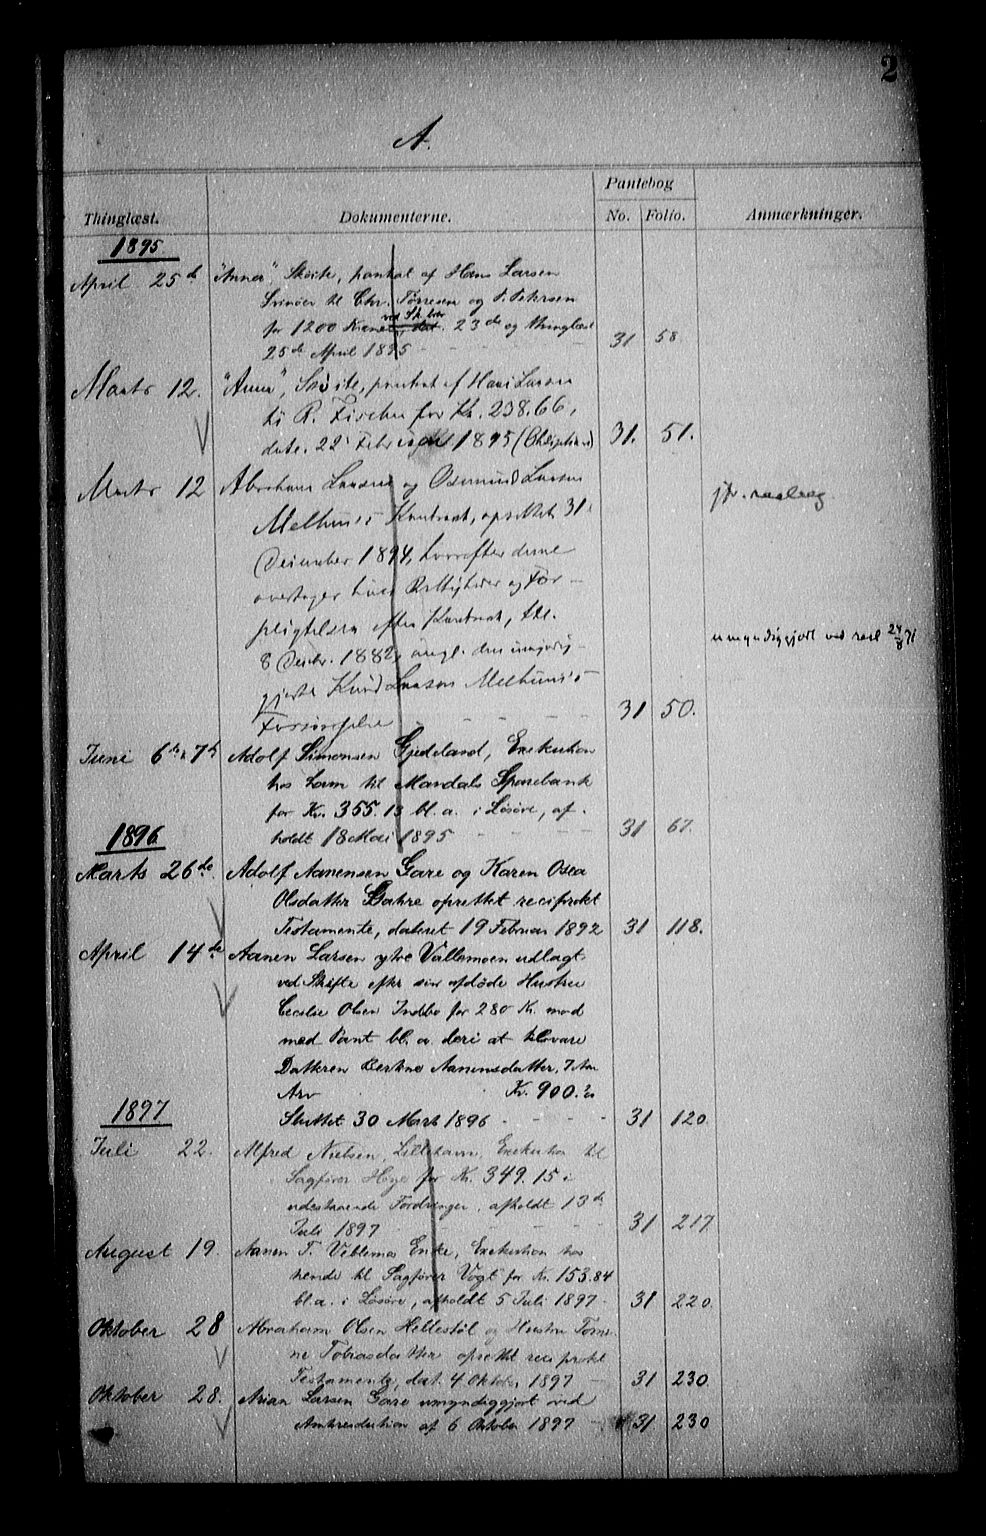 2
A.
Thinglæst. Dokumenterne. Pantebog No. Folio. Anmærkninger.
1895
April 25de "Anna" Skøite, pantsat af Hans Larsen
Svinøer til Chr. Tørresen og P. Petersen
for 1200 Kroner, dat. 23de og thinglæst
25de April 1895 - 31 58
Marts 12. "Anna", Skøite, pantsat af Hans Larsen
til R. Fischer for Kr. 238.66,
dat. 22 Februar 1895 (Obligation) 31. 51.
Marts 12 Abraham Larsen og Osmund Larsen
Melhus's Kontrakt, oprettet 31
December 1894, hvorefter denne
overtager hins Rettigheder og For-
pligtelser efter Kontrakt, thl.
8 Decbr. 1882, angl. den umyndig-
gjorte Knud Larsen Melhus's
Forsørgelse 31 50.
umyndiggjort ved
Juni 6te & 7de Adolf Simonsen Gjedeland, Exekution
hos ham til Mandals Sparebank
for Kr. 355.13 bl. a. i Løsøre, af-
holdt 18 Mai 1895 - 31 67.
1896
Marts 26de. Adolf Aanensen Gare og Karen Osea
Olsdatter Gahre oprettet reciprokt
Testamente, dateret 19 Februar 1892 31 118.
April 14de Aanen Larsen ytre Vallemoen udlagt
ved Skifte efter sin afdøde Hustru
Cecilie Olsen Indbo for 280 Kr. mod
med Pant bl. a. deri at tilsvare
Datteren Aanensdatter,
Arv Kr. 900.
Sluttet 30 Marts 1896 - 31 120.
1897
Juli 22. Alfred Nielsen, Lillehavn, Exekution til
Sagfører Høye for Kr. 349.15 i
udestaaende Fordringer, afholdt 13de
Juli 1897 31 217.
August 19. Aanen T. Veblemos Enke, Exekution hos
hende til Sagfører Vogt for Kr. 153.84
bl. a. i Løsøre, afholdt 5 Juli 1897 - 31 220.
Oktober 28 Abraham Olsen Hellestøl og Hustru Tomi-
ne Tobiasdatter oprettet reciprokt
Testamente, dat. 4 Oktober 1897 - 31 230.
Oktober 28. Arian Larsen Gare umyndiggjort ved
Amtresolution af 6 Oktober 1897 - 31 230